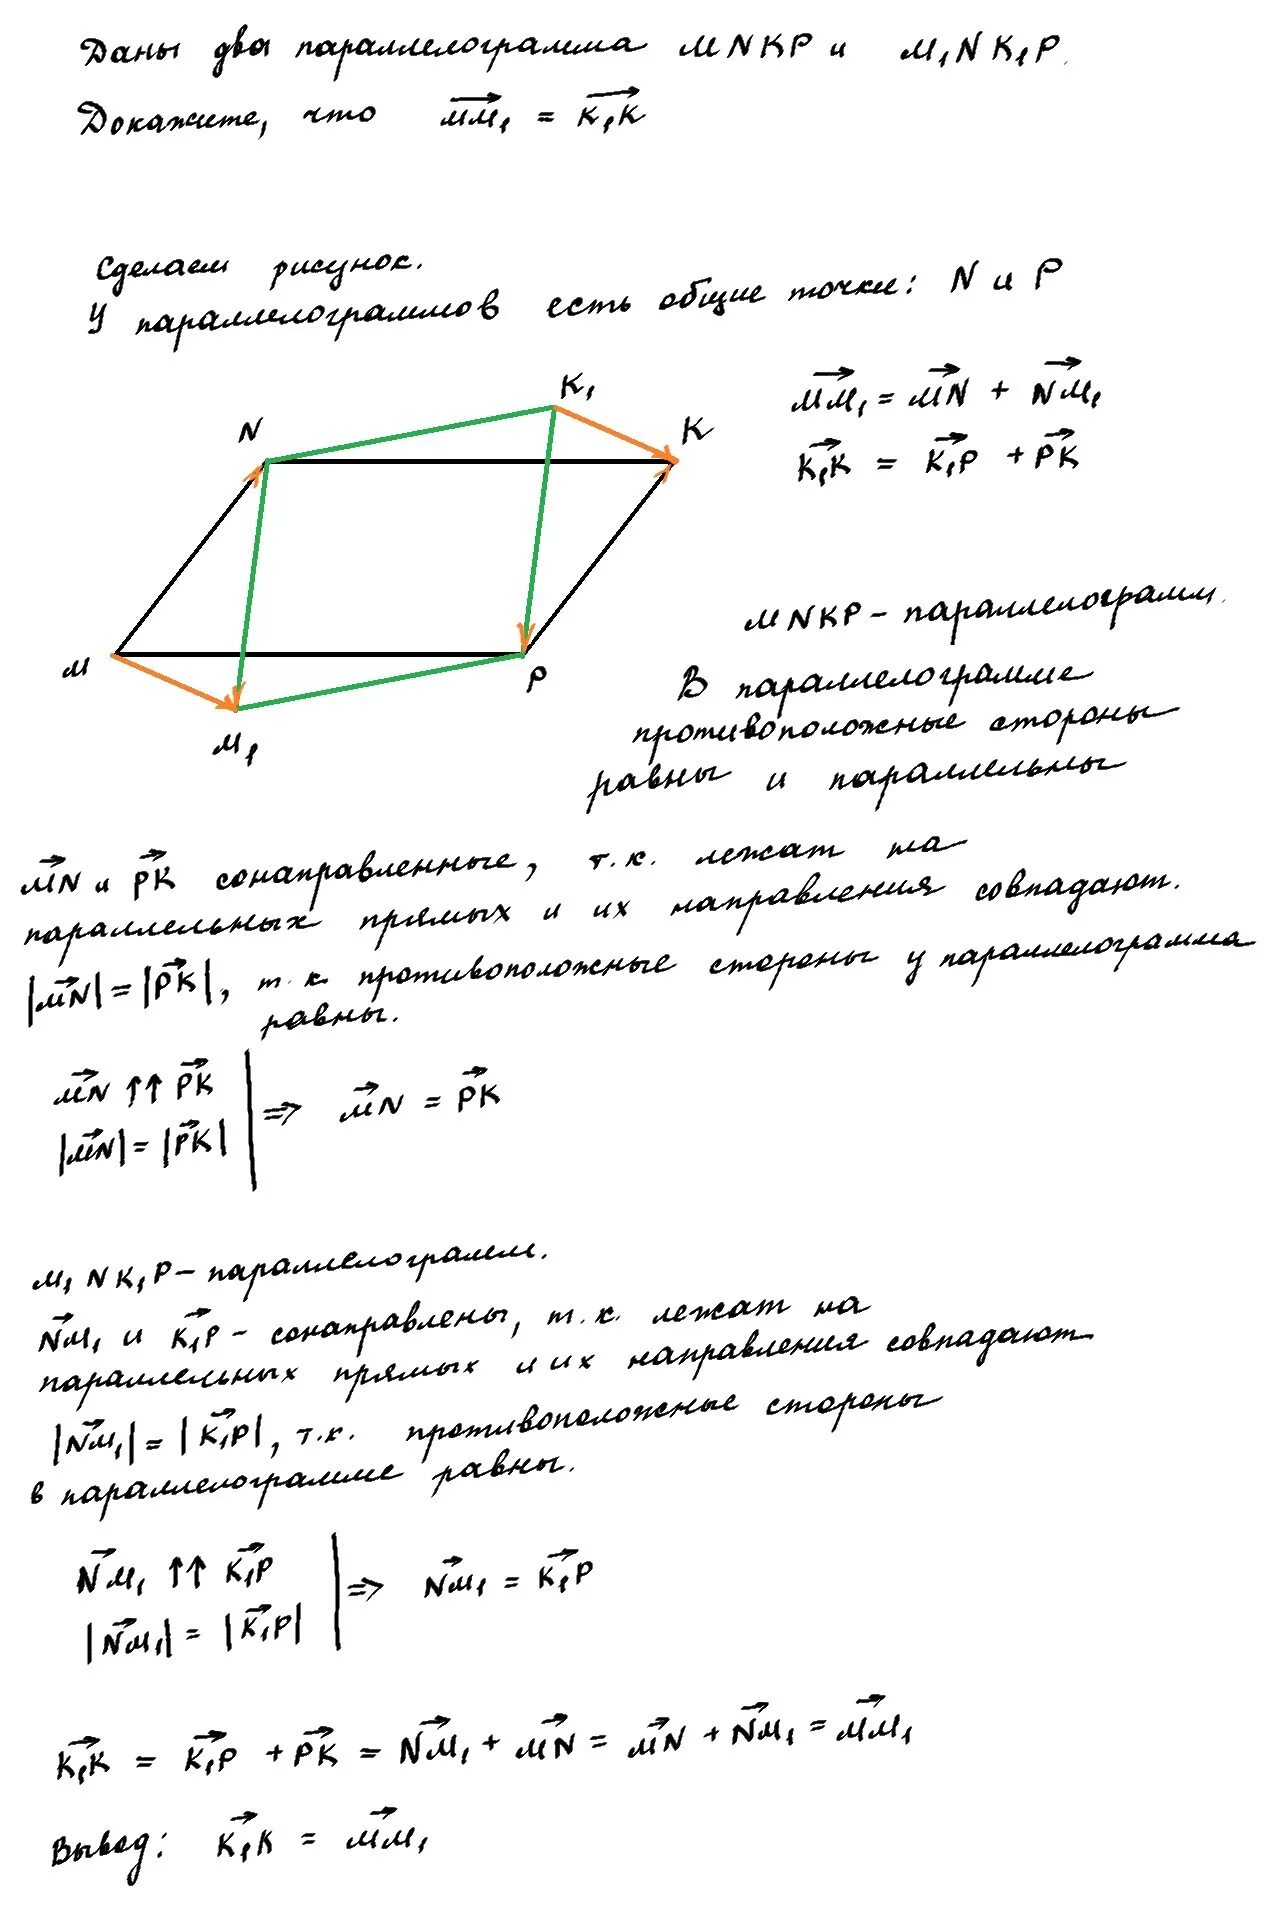 Даны два параллелограмма MNKP и M₁NK₁P.
Докажите, что →MM₁ = →K₁K
Сделаем рисунок.
У параллелограммов есть общие точки: N и P
N
K₁
K
M
M₁
P
→MM₁ = →MN + →NM₁
→K₁K = →K₁P + →PK
MNKP – параллелограмм.
В параллелограмме
противоположные стороны
равны и параллельны
→MN и →PK сонаправленные, т.к. лежат на
параллельных прямых и их направления совпадают.
|→MN| = |→PK|, т.к. противоположные стороны у параллелограмма
равны.
→MN ↑↑ →PK
|→MN| = |→PK| | ⇒ →MN = →PK
M₁NK₁P – параллелограмм.
→NM₁ и →K₁P – сонаправлены, т.к. лежат на
параллельных прямых и их направления совпадают
|→NM₁| = |→K₁P|, т.к. противоположные стороны
в параллелограмме равны.
→NM₁ ↑↑ →K₁P
|→NM₁| = |→K₁P| | ⇒ →NM₁ = →K₁P
→K₁K = →K₁P + →PK = →NM₁ + →MN = →MN + →NM₁ = →MM₁
Вывод: →K₁K = →MM₁